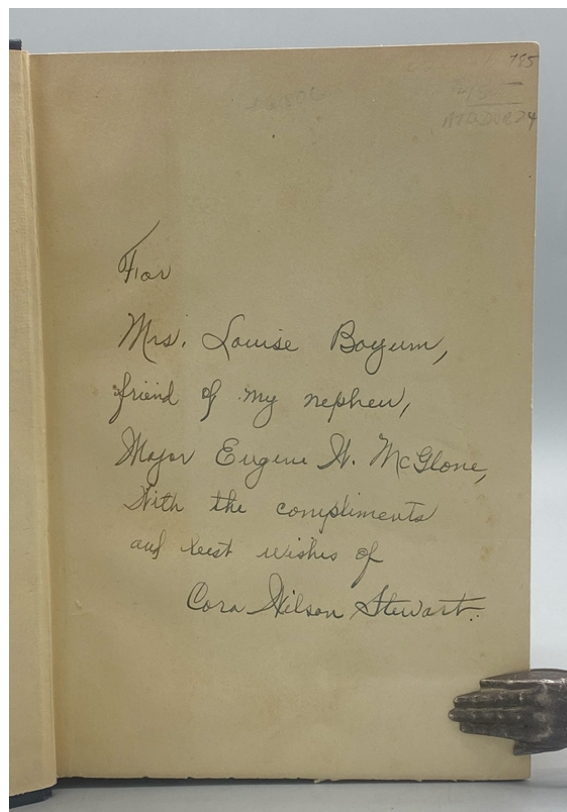 795
For
Mrs. Louise Boyum,
friend of my nephew,
Major Eugene W. McGlone,
With the compliments
and best wishes of
Cora Wilson Stewart.